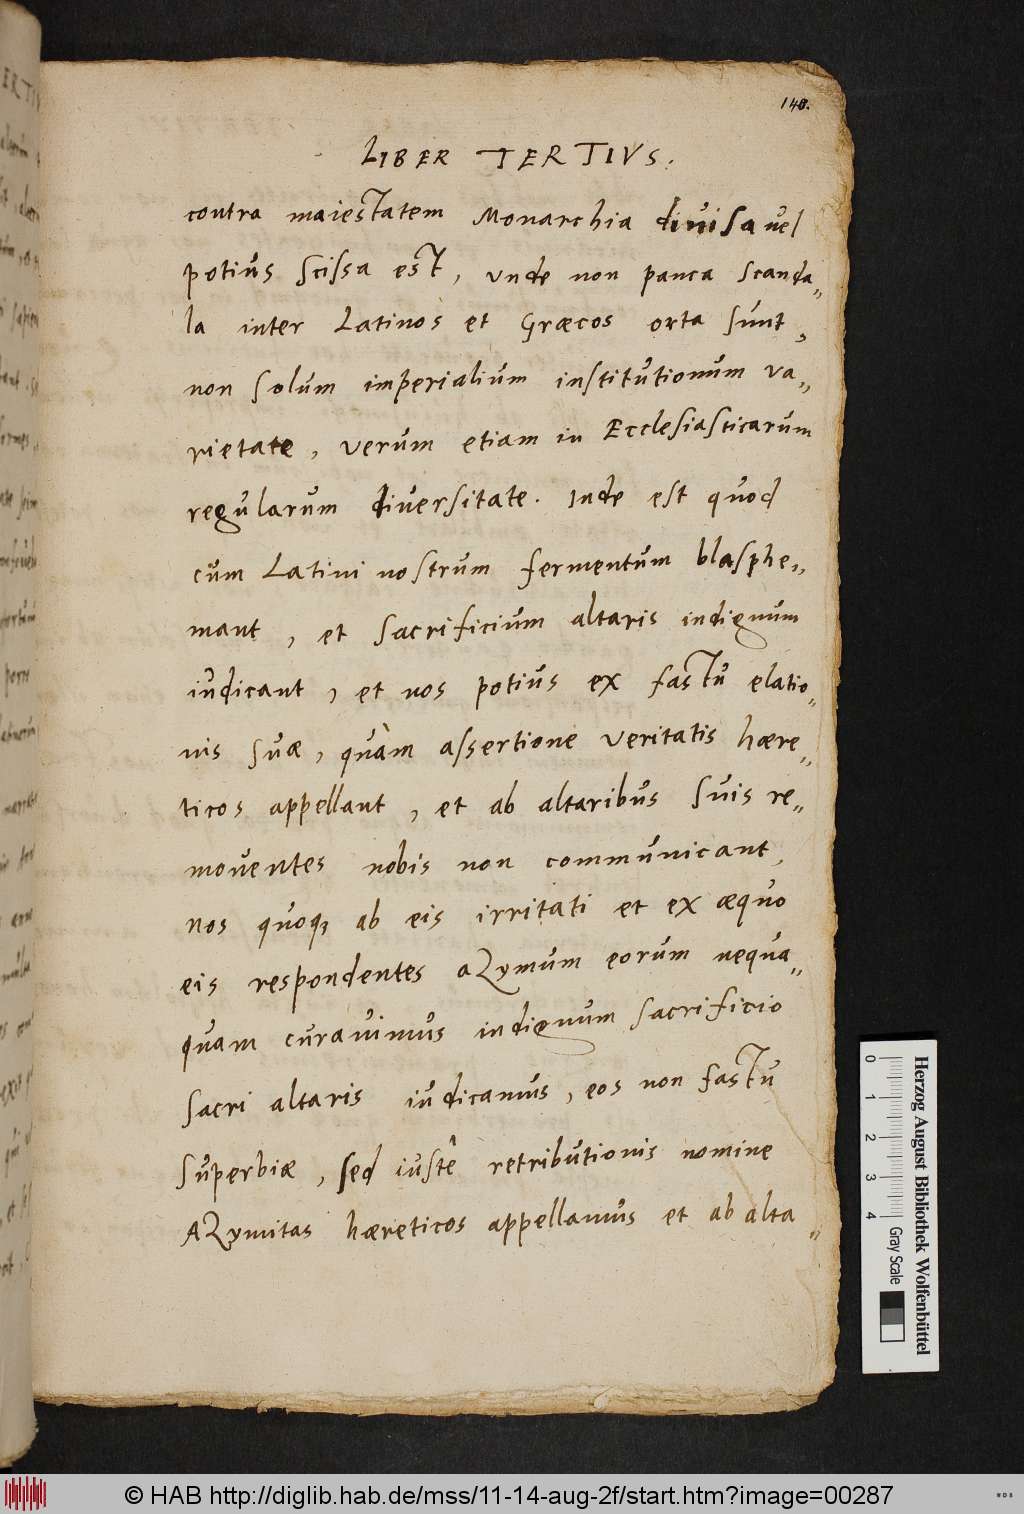 140.
LIBER TERTIVS.
contra maiestatem Monarchia divisa vel
potius scissa est, vnde non pauca scanda„
la inter Latinos et Græcos orta sunt,
non solum imperialium institutionum va„
rietate, verum etiam in Ecclesiasticarum
regularum diversitate. Inde est quod
cum Latini nostrum fermentum blasphe„
mant, et sacrificium altaris indignum
iudicant, et nos potius ex fastu elatio„
nis suæ, quàm assertione veritatis hære„
ticos appellant, et ab altaribus suis re„
moventes nobis non communicant,
nos quoq; ab eis irritati et ex æquo
eis respondentes aZymum eorum nequa„
quam curavimus indignum sacrificio
sacri altaris iudicamus, eos non fastu
superbiæ, sed iustê retributionis nomine
AZymitas hæreticos appellamus et ab alta„
Herzog August Bibliothek Wolfenbüttel
0 1 2 3 4 Gray Scale
© HAB http://diglib.hab.de/mss/11-14-aug-2f/start.htm?image=00287